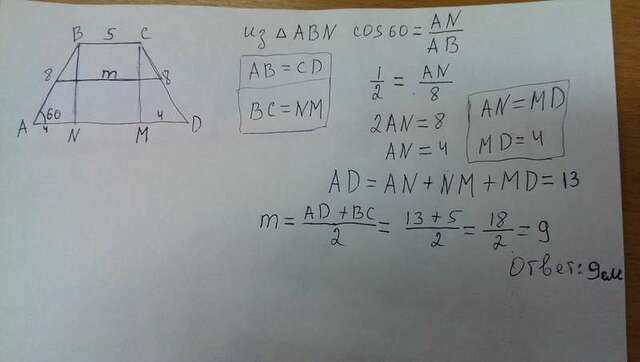 B 5 C
8 m 8
60
A 4 N M 4 D
из △ ABN cos60 = AN/AB
AB = CD
BC = NM
1/2 = AN/8
2AN = 8
AN = 4
AN = MD
MD = 4
AD = AN + NM + MD = 13
m = AD + BC/2 = 13 + 5/2 = 18/2 = 9
Ответ: 9см